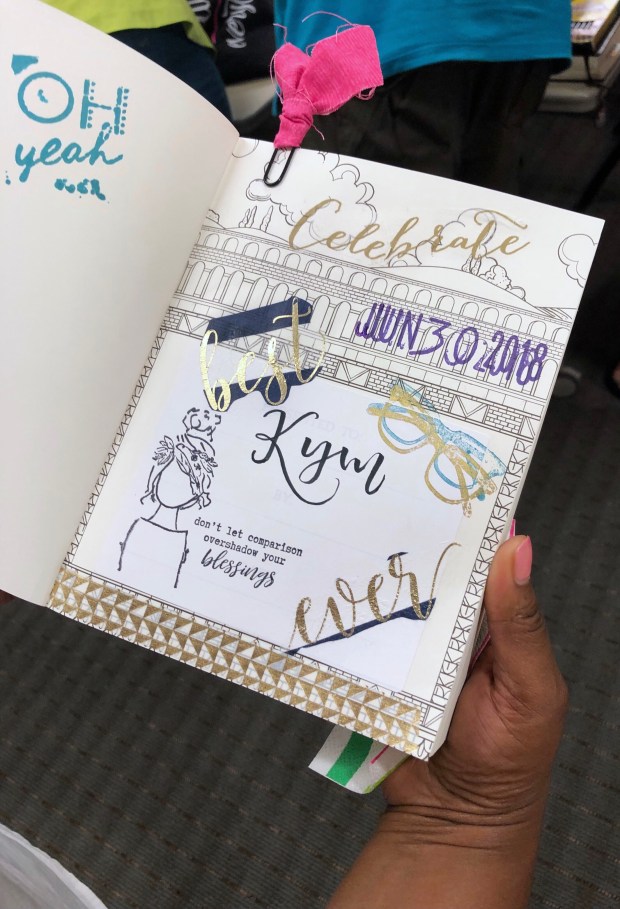 OH
yeah
Celebrate
JUN 30 2018
best
Kym
don't let comparison
overshadow your
blessings
ever